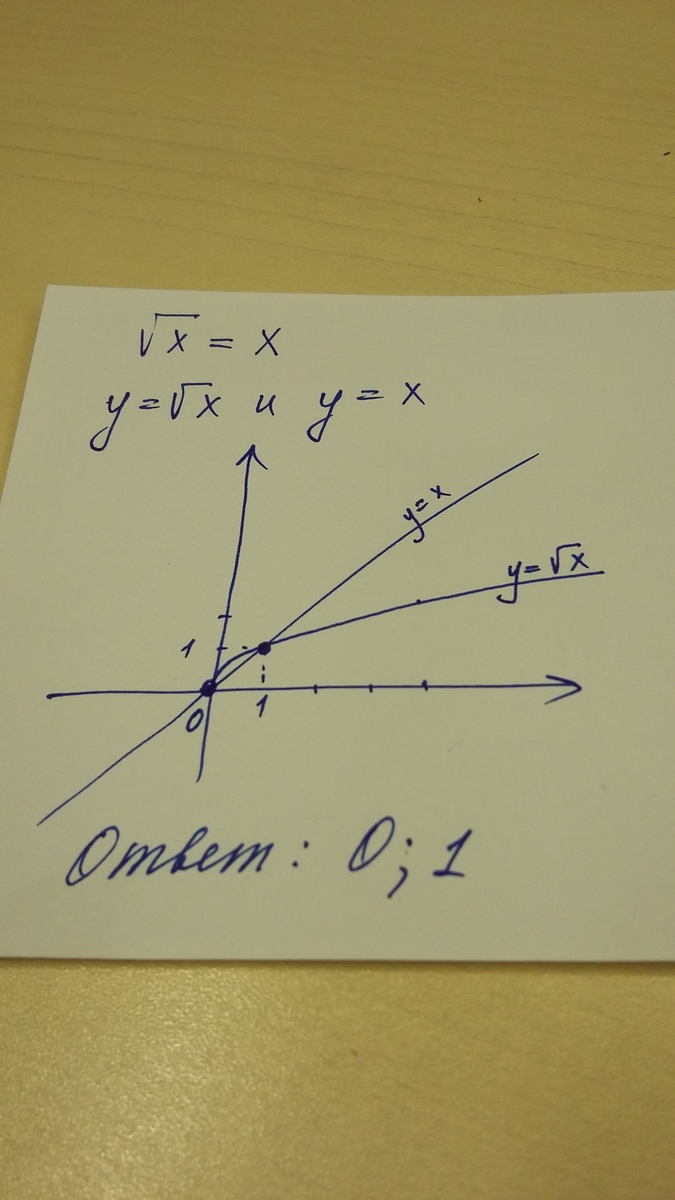 √x = x
y = √x и y = x
y = x
y = √x
1
0
1
Ответ: 0; 1